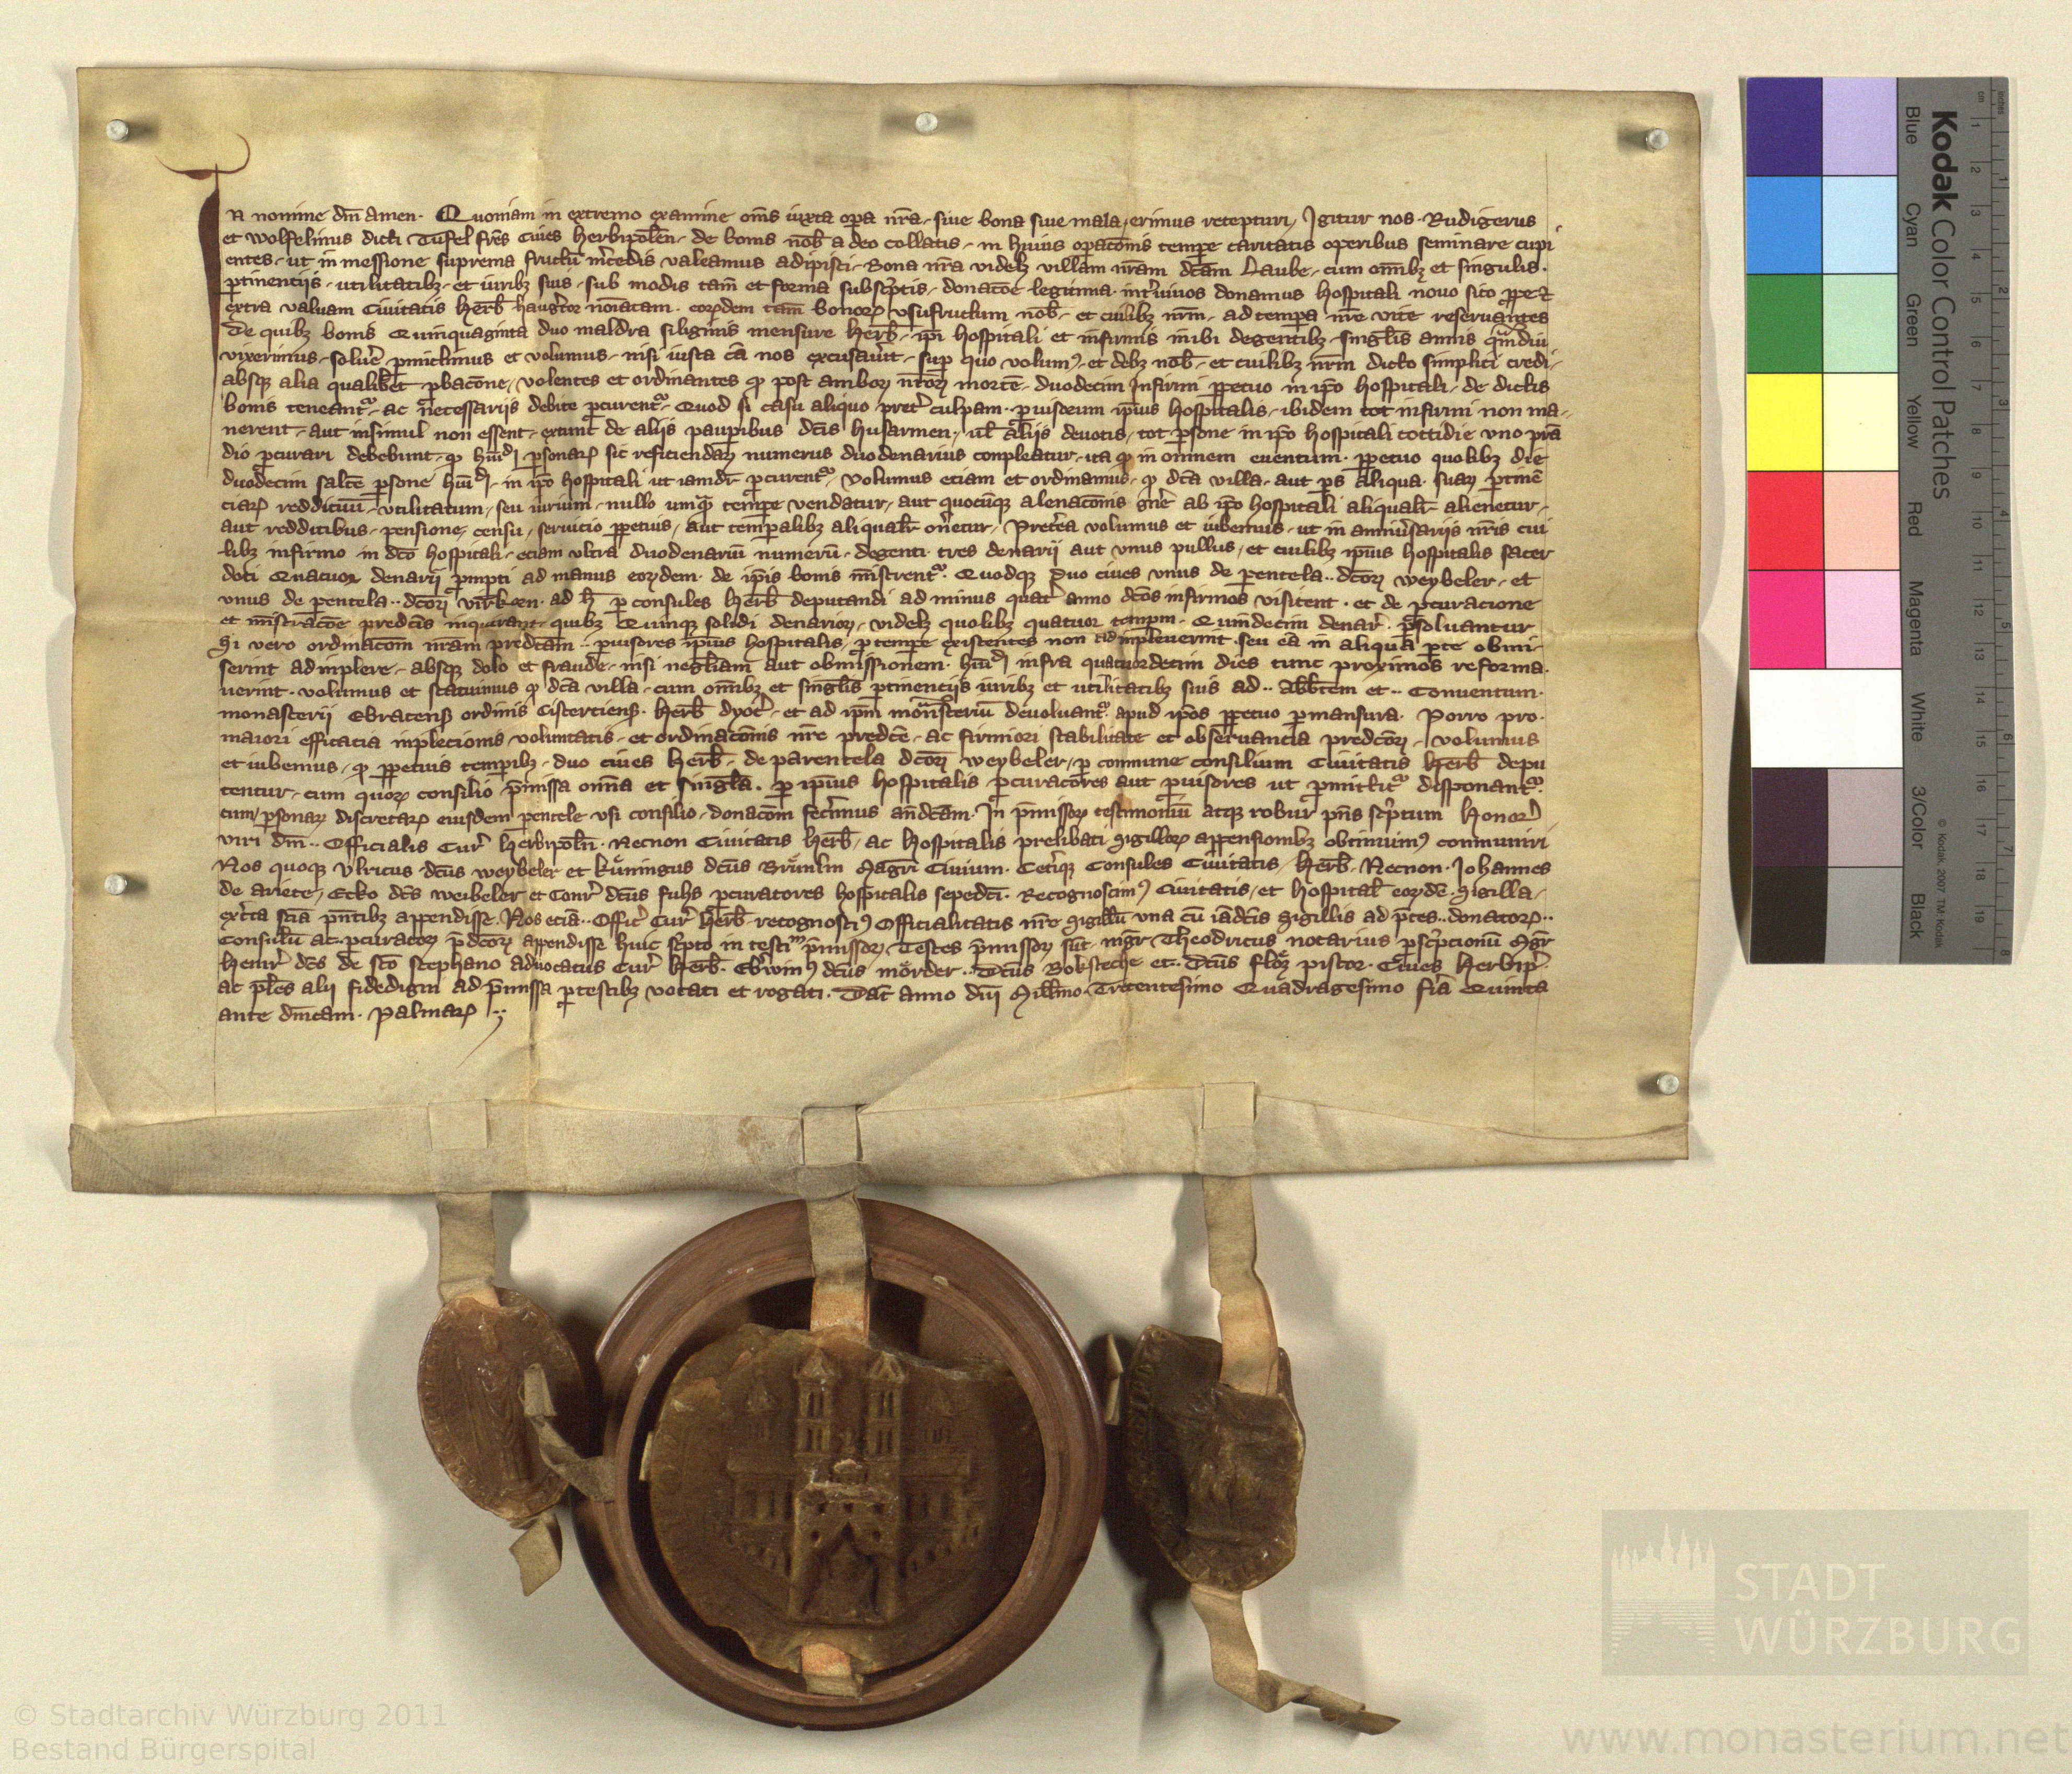 In nomine dn̄i amen. Quoniam in extremo examine om̄s iuxta oꝑa nr̄a, siue bona siue mala, erimus recepturi, Igitur nos Rudigerus
et Wolfelinus dicti Tufel fr̄es Ciues Herbipolēn, de bonis nob̄ a deo collatis, in huius oꝑac̄onis tempꝛe caritatis operibus seminare cupi
entes, ut in messione suprema fructū m̄cedis valeamus adipisci, Bona nr̄a videlꝫ villam nr̄am dc̄am Laube, cum om̄ibꝫ et singulis
ꝑtinentijs, utilitatibꝫ, et iuribꝫ suis, sub modis tam̄ et forma subscͥptis, donac̄oe legitima int̓viuos donamus hospitali nouo sito ꝓpe et
extra valuam Ciuitatis Herb̄ haugͤtor nōiatam, eoꝝdem tam̄ bonoꝝ vsufructum nob̄, et cuilibꝫ nr̄m, ad tempͣa nr̄e vite reseruantes
de quibꝫ bonis Quinquaginta duo maldra siliginis mensure Herb̄, ip̄i hospitali et infirmis inibi degentibꝫ, singl̄is annis qͣmdiu
vixerimus, soluͤe ꝓmictimus et volumus, nisi iusta cā nos excusauͤit, suꝑ quo volumꝰ, et debꝫ nob̄, et cuilibꝫ nr̄m dicto simplici credi,
absqꝫ alia qualibet ꝓbac̄one, volentes et ordinantes ꝙ post amboꝝ nr̄oꝝ mortē, duodecim Infirmi ꝑpetuo in ip̄o hospitali, de dictis
bonis teneantᷣ, ac necessarijs debite ꝓcurentᷣ, Quod si casu aliquo pret̓ culpam ꝓuisoꝝum ip̄ius hospitalis, ibidem tot infirmi non ma-
nerent, aut insimul non essent, extunc de alijs pauꝑibus dc̄is husarmen, ul̄ alijs deuotis, tot ꝑsone in ip̄o hospitali cottidie vno prā
dio ꝓcurari debebunt, ꝙ hui᷒di ꝑsonaꝝ sic reficiendaꝝ numerus duodenarius conpleatur, ita ꝙ in omnem euentum ꝑpetuo quolibꝫ die
duodecim saltē ꝑsone hui᷒di, in ip̄o hospitali ut iamdc̄r ꝓcurentᷣ, volumus etiam et ordinamus, ꝙ dc̄a villa, aut ꝑs aliqua suaꝝ ꝑtinē
ciaꝝ reddituū, vtilitatum, seu iurium, nullo umqͣ tempꝛe vendatur, aut quocūqꝫ alienac̄onis gn̄e ab ip̄o hospitali aliqualr̄ alienetur,
aut redditibus, pensione, censu, seruicio ꝑpetuis, aut temꝑalibꝫ aliqualr̄ on̄etur, Pret̓ea volumus et iubemus, ut in anniu͛sarijs nr̄is cui
libꝫ infirmo in dc̄o hospitali, etiam vltra duodenariū numerū, degenti tres denarij aut vnus pullus, et cuilibꝫ ip̄ius hospitalis sacer
doti Quatuor denarij ꝓmpti ad manus eoꝝdem de ip̄is bonis mīstrentᷣ. Quodqꝫ Duo ciues vnus de ꝑentela .. dc̄oꝝ weybeler, et
vnus de ꝑentela .. dc̄oꝝ ad h̄ ꝑ consules Herb̄ deputandi ad minus quat̓ anno dc̄os infirmos visitent, et de ꝓcuracione
et mīstrac̄oe predc̄is inquirant, quibꝫ Quinqꝫ solidi denarioꝝ, videlꝫ quolibꝫ quatuor tempm̄, Quindecim denar̓ ꝑsoluantur
Si vero ordinac̄om nr̄am predc̄am .. ꝓuisores ip̄ius hospitalis, ꝓ tempꝛe existentes non adinpleuerint, seu eā in aliqua ꝑte obmi-
serint adinplere, absqꝫ dolo et fraude, nisi negl̄iam aut obmissionem hui᷒di infra quatuordecim dies tunc proximos reforma-
uerint, volumus et statuimus ꝙ dc̄a villa, cum om̄ibꝫ et singl̄is ꝑtinentijs iuribꝫ et utilitatibꝫ suis ad .. Abb̄tem et .. Conuentum
monasterij Ebracens̄ ordinis Cisterciens̄, Herb̄ dyoc̄, et ad ip̄m monasteriū deuoluantᷣ apud ip̄os ꝑpetuo ꝑmansura. Porro pro
maiori efficatia inplecionis voluntatis, et ordinac̄onis nr̄e predc̄e, ac firmiori stabilitate et obseruancia predc̄oꝝ, volumus
et iubemus, ꝙ ꝑpetuis temꝑibꝫ, duo ciues Herb̄, de parentela dc̄oꝝ weybeler, ꝑ commune consilium Ciuitatis Herb̄ depu
tentur, cum quoꝝ consilio ꝑmissa om̄ia et singl̄a, ꝑ ip̄ius hospitalis ꝓcurac̄ores aut ꝓuisores ut ꝑmittitᷣ disponantᷣ.
cum ꝑsonaꝝ discretaꝝ eiusdem ꝑentele vsi consilio, donac̄om fecimus an̄dc̄am. In p̄missoꝝ testimoniū atqꝫ robur p̄ns scͥptum Honor̄
viri dn̄i .. Officialis Cur̓ Herbipoln̄. Necnon Ciuitatis Herb̄, ac Hospitalis prelibati sigilloꝝ appensionibꝫ obtinuimꝰ communiri
Nos quoqꝫ Vlricus dc̄us weybeler et Kuningus dc̄us Magr̄i Ciuium, Cet̓iqꝫ Consules Ciuitatis, Herb̄, Necnon Johannes
de ariete, Ecko dc̄s weibeler et Conr̓ dc̄us fuhs ꝓcuratores hospitalis sepedc̄i, Recognoscimꝰ Ciuitatis, et Hospital̄ eoꝝdē sigilla,
ex cͤta sciā p̄ntibꝫ appendisse. Nos etiā .. Offic̓ Cur̓ Herb̄ recognoscimꝰ Officialitatis nr̄e sigillū vna cū iādc̄is sigillis ad p̄ces .. donatoꝝ ..
Consulū ac ꝓcuratoꝝ p̄dc̄oꝝ appendisse huic sc̄pto in testim̄ p̄missoꝝ, Testes p̄missoꝝ sūt, mgr̄ Theodricus notarius Mgr̄
Heinr̓ dc̄s de sc̄o Stephano aduocatus Cur̓ Herb̄. Eb̓winꝰ dc̄us mörder .. Dc̄us Boksteche et .. Dc̄us pistor. Ciues Herbip̄.
ac pl̄es alij fidedigni ad p̄missa ꝑ testibꝫ vocati et rogati. Dat̄ anno dn̄i Mill̄mo Trecentesimo Quadragesimo fi̓a Quinta
ante dn̄icam Palmaꝝ
Kodak Color Control Patches
Blue Cyan Green Yellow Red Magenta White 3/Color Black
© Kodak, 2007 TM: Kodak
cm 1 2 3 4 5 6 7 8 9 10 11 12 13 14 15 16 17 18 19
inches 1 2 3 4 5 6 7 8
STADT
WÜRZBURG
© Stadtarchiv Würzburg 2011
Bestand Bürgerspital
www.monasterium.net